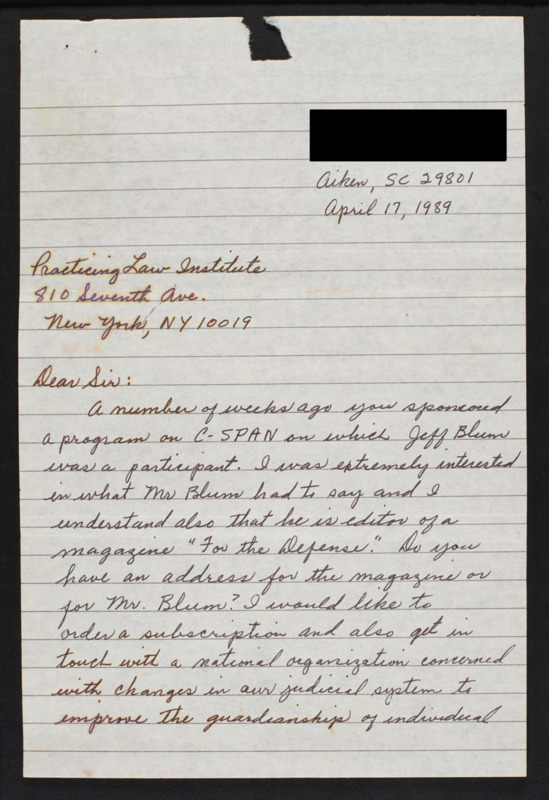 Aiken, SC 29801
April 17, 1989
Practicing Law Institute
810 Seventh Ave.
New York, NY 10019
Dear Sir:
A number of weeks ago you sponsored
a program on C-SPAN on which Jeff Blum
was a participant. I was extremely interested
in what Mr Blum had to say and I
understand also that he is editor of a
magazine "For the Defense." Do you
have an address for the magazine or
for Mr. Blum? I would like to
order a subscription and also get in
touch with a national organization concerned
with changes in our judicial system to
improve the guardianship of individual